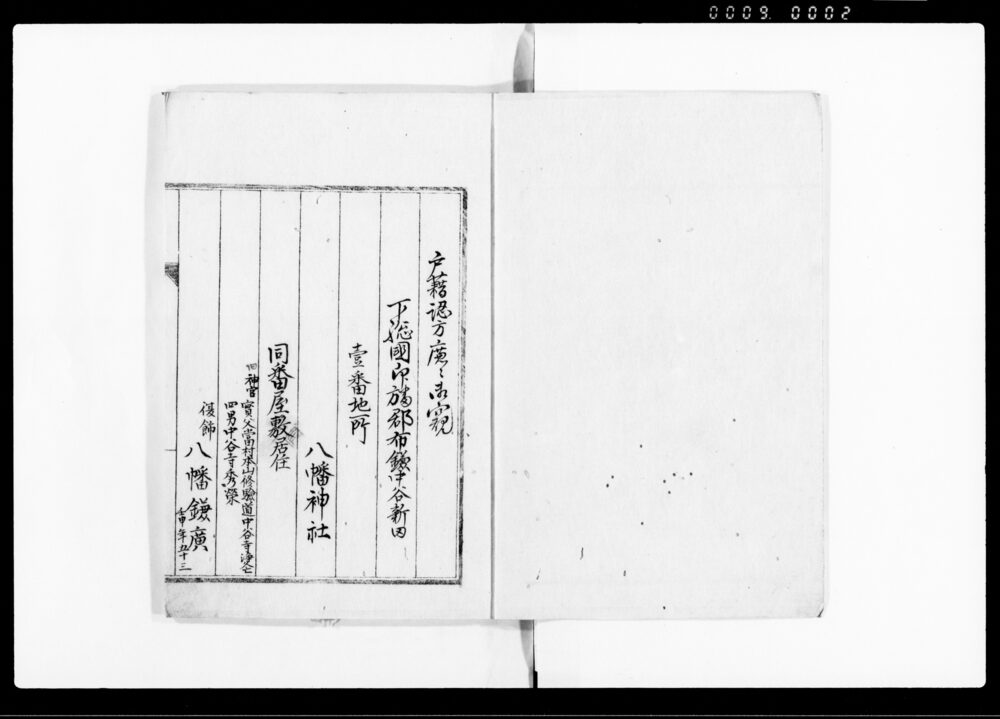 0009. 0002
戸籍認方廣〻御窺
下総國印旛郡布鎌中谷新田
壹番地所
八幡神社
同番屋敷居住
神官 實父當村本山修驗道中谷寺浄
四男中谷寺秀榮
復飾
八幡鎌廣
壬申年五十三